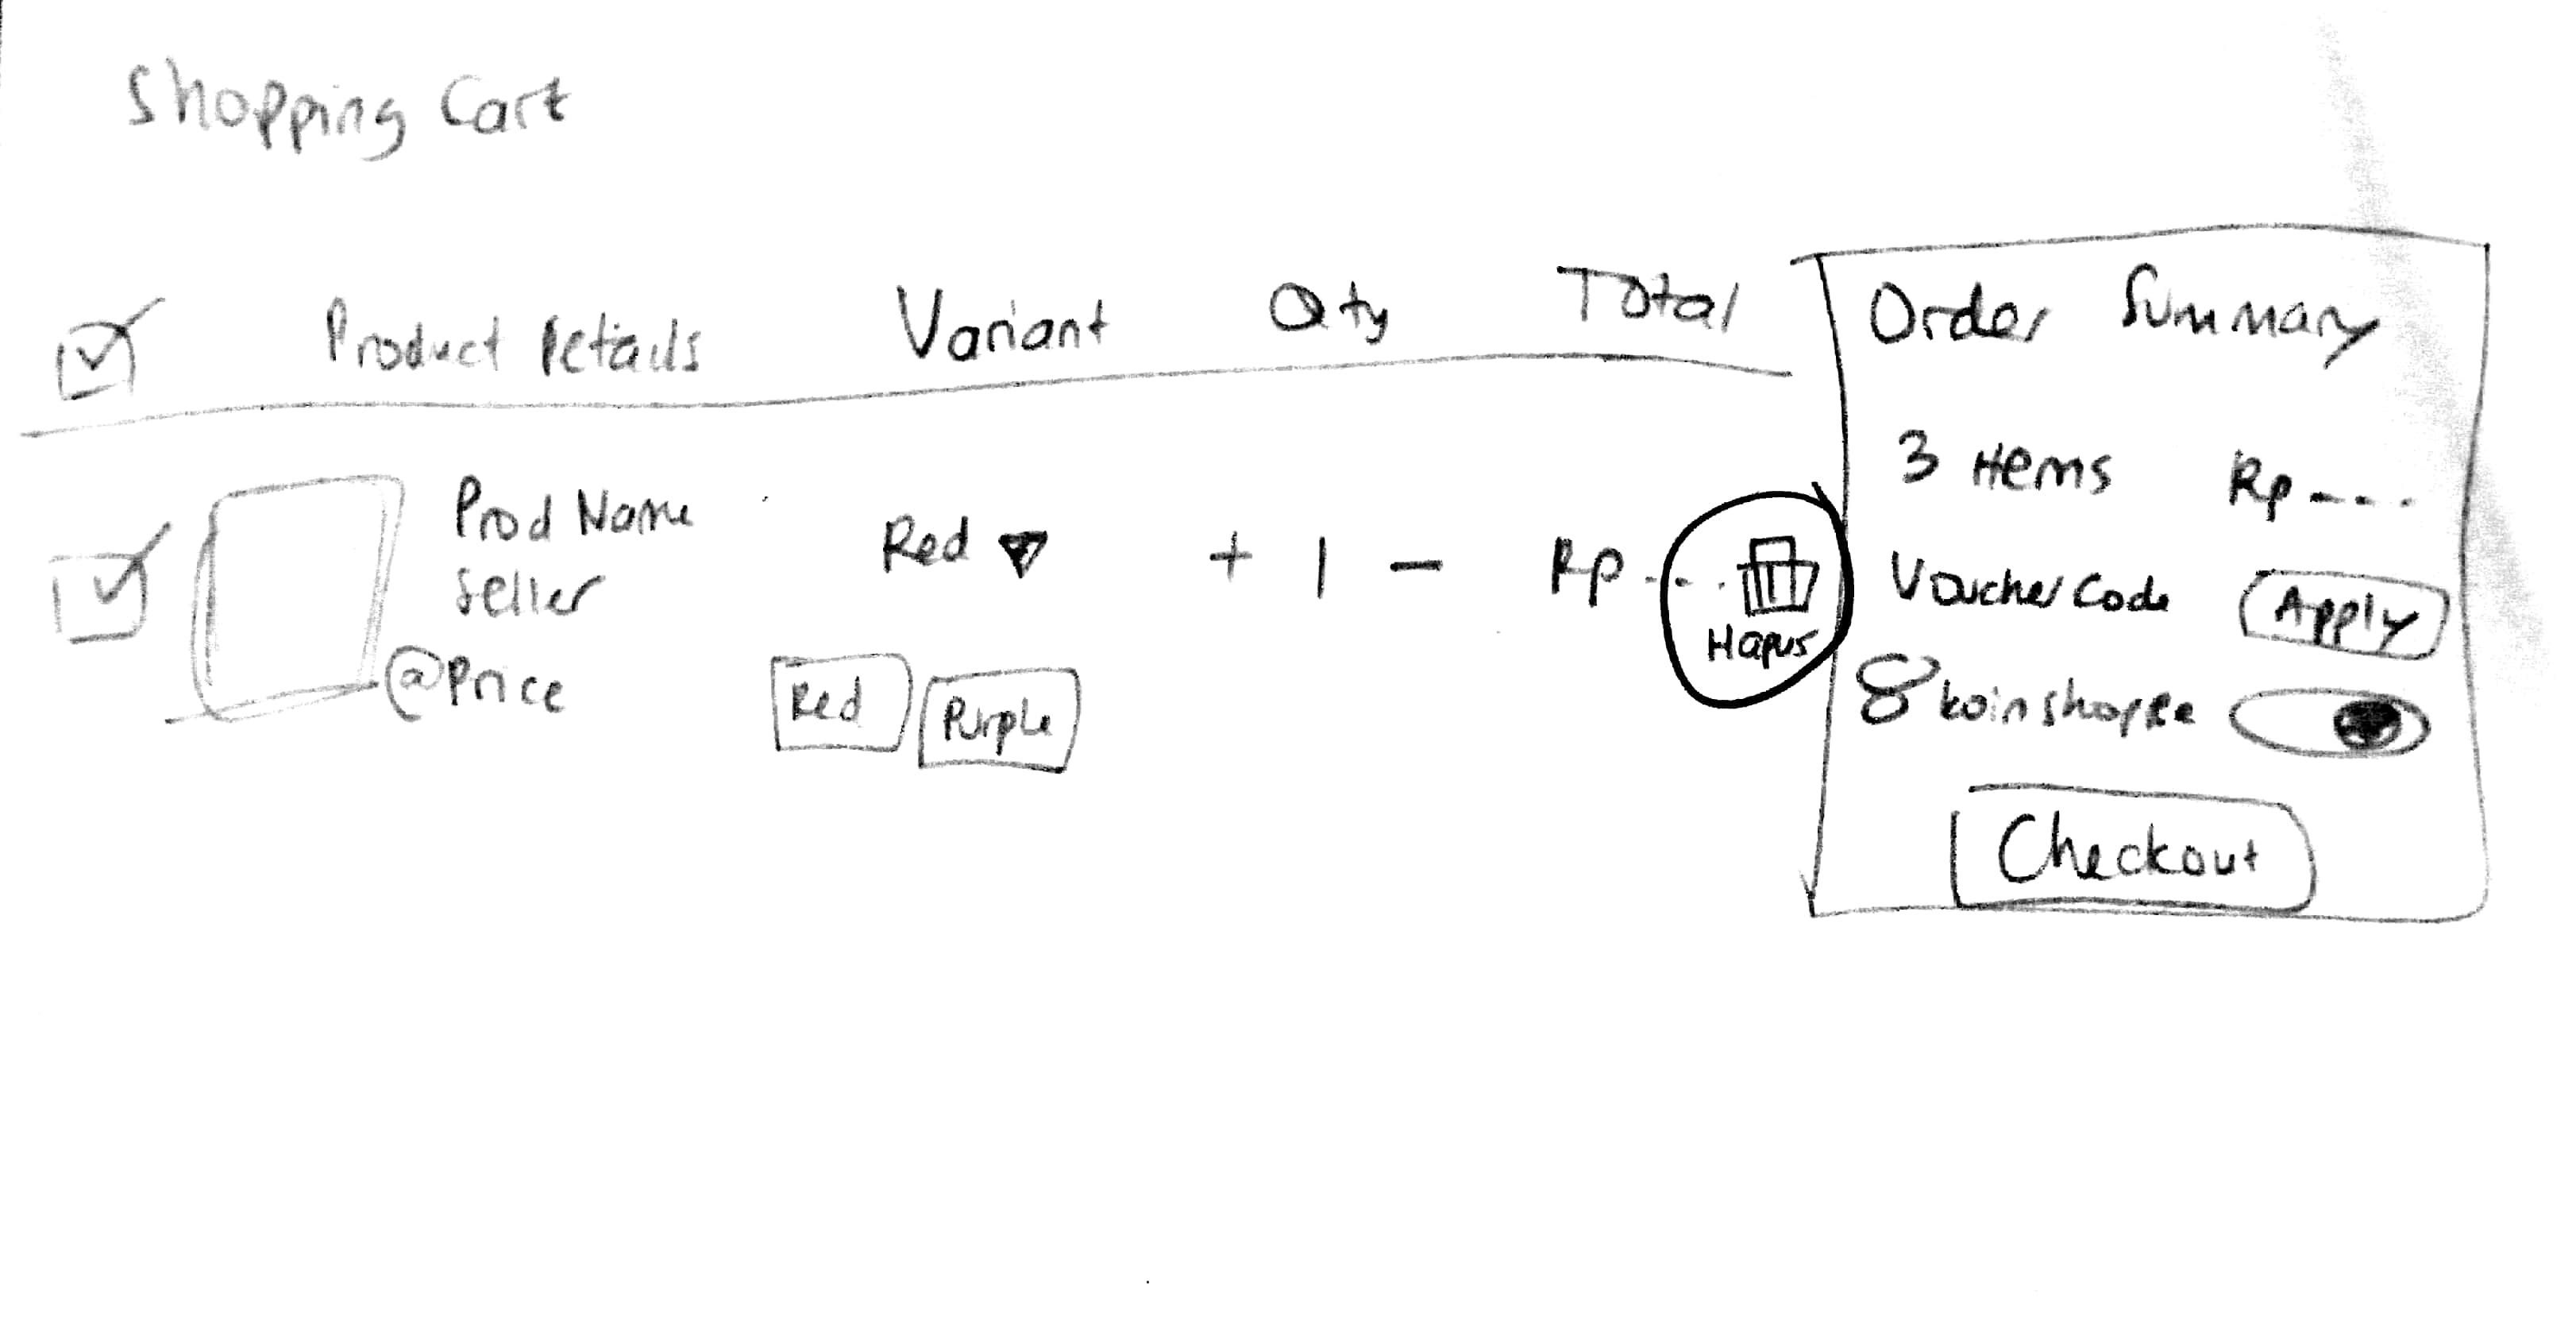 Shopping Cart
Product Details Variant Qty Total
Prod Name
Seller
@Price
Red
+ 1 -
Rp ....
Hapus
Red Purple
Order Summary
3 items Rp ----
Voucher Code Apply
8 koin shopee
Checkout